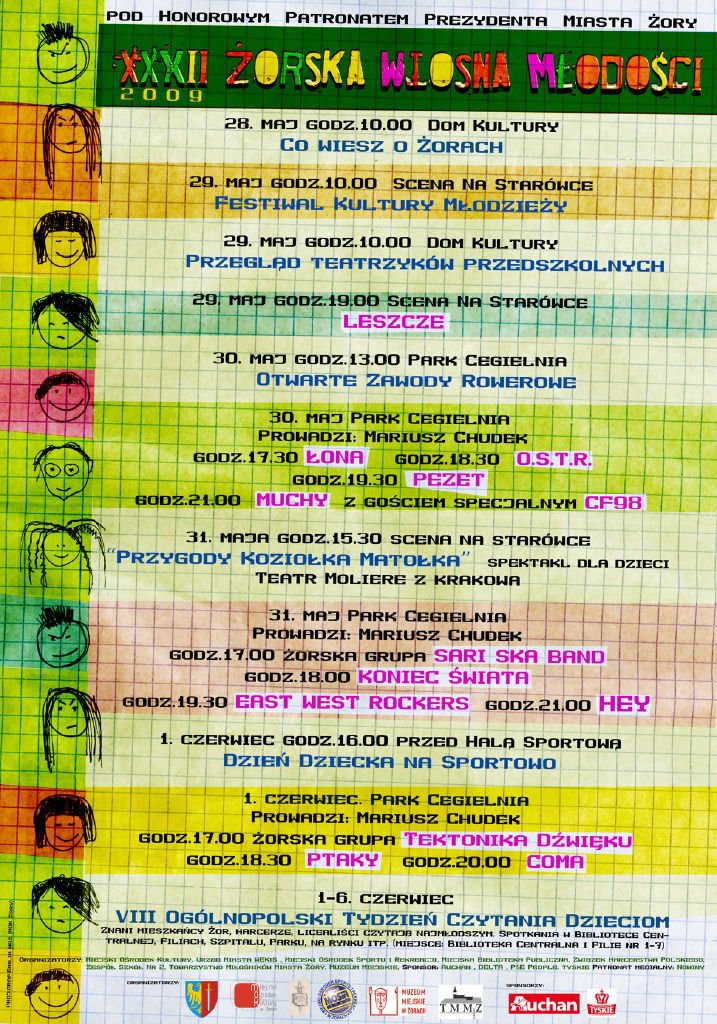 Pod Honorowym Patronatem Prezydenta Miasta Żory
XXXII ŻORSKA WIOSNA MŁODOŚCI
2009
28. maj godz.10.00 Dom Kultury
Co wiesz o Żorach
29. maj godz.10.00 Scena Na Starówce
Festiwal Kultury Młodzieży
29. maj godz.10.00 Dom Kultury
Przegląd teatrzyków przedszkolnych
29. maj godz.19.00 Scena Na Starówce
LESZCZE
30. maj godz.13.00 Park Cegielnia
Otwarte Zawody Rowerowe
30. maj Park Cegielnia
Prowadzi: Mariusz Chudek
godz.17.30 ŁONA godz.18.30 O.S.T.R.
godz.19.30 PEZET
godz.21.00 MUCHY z gościem specjalnym CF98
31. maja godz.15.30 scena na starówce
"Przygody Koziołka Matołka" spektakl dla dzieci
Teatr Moliere z krakowa
31. maj Park Cegielnia
Prowadzi: Mariusz Chudek
godz.17.00 żorska grupa SARI SKA BAND
godz.18.00 KONIEC ŚWIATA
godz.19.30 EAST WEST ROCKERS godz.21.00 HEY
1. czerwiec godz.16.00 przed Halą Sportową
Dzień Dziecka na Sportowo
1. czerwiec. Park Cegielnia
Prowadzi: Mariusz Chudek
godz.17.00 żorska grupa TEKTONIKA DŹWIĘKU
godz.18.30 PTAKY godz.20.00 COMA
1-6. czerwiec
VIII Ogólnopolski Tydzień Czytania Dzieciom
Znani mieszkańcy Żor, harcerze, licealiści czytają najmłodszym. Spotkania w Bibliotece Cen-
tralnej, Filiach, Szpitalu, Parku, na rynku itp. (miejsce: Biblioteka Centralna i Filie nr 1-7)
Organizatorzy: Miejski Ośrodek Kultury, Urząd Miasta WEKIS, Miejski Ośrodek Sportu i Rekreacji, Miejska Biblioteka Publiczna, Związek Harcerstwa Polskiego,
Zespół Szkół nr 2, Towarzystwo Miłośników Miasta Żory, Muzeum Miejskie, Sponsor: Auchan, DELTA, P&E People, Tyskie Patronat medialny: Nowiny
organizatorzy:
sponsorzy:
MUZEUM
MIEJSKIE
W ŻORACH
TMMŻ
Auchan
TYSKIE